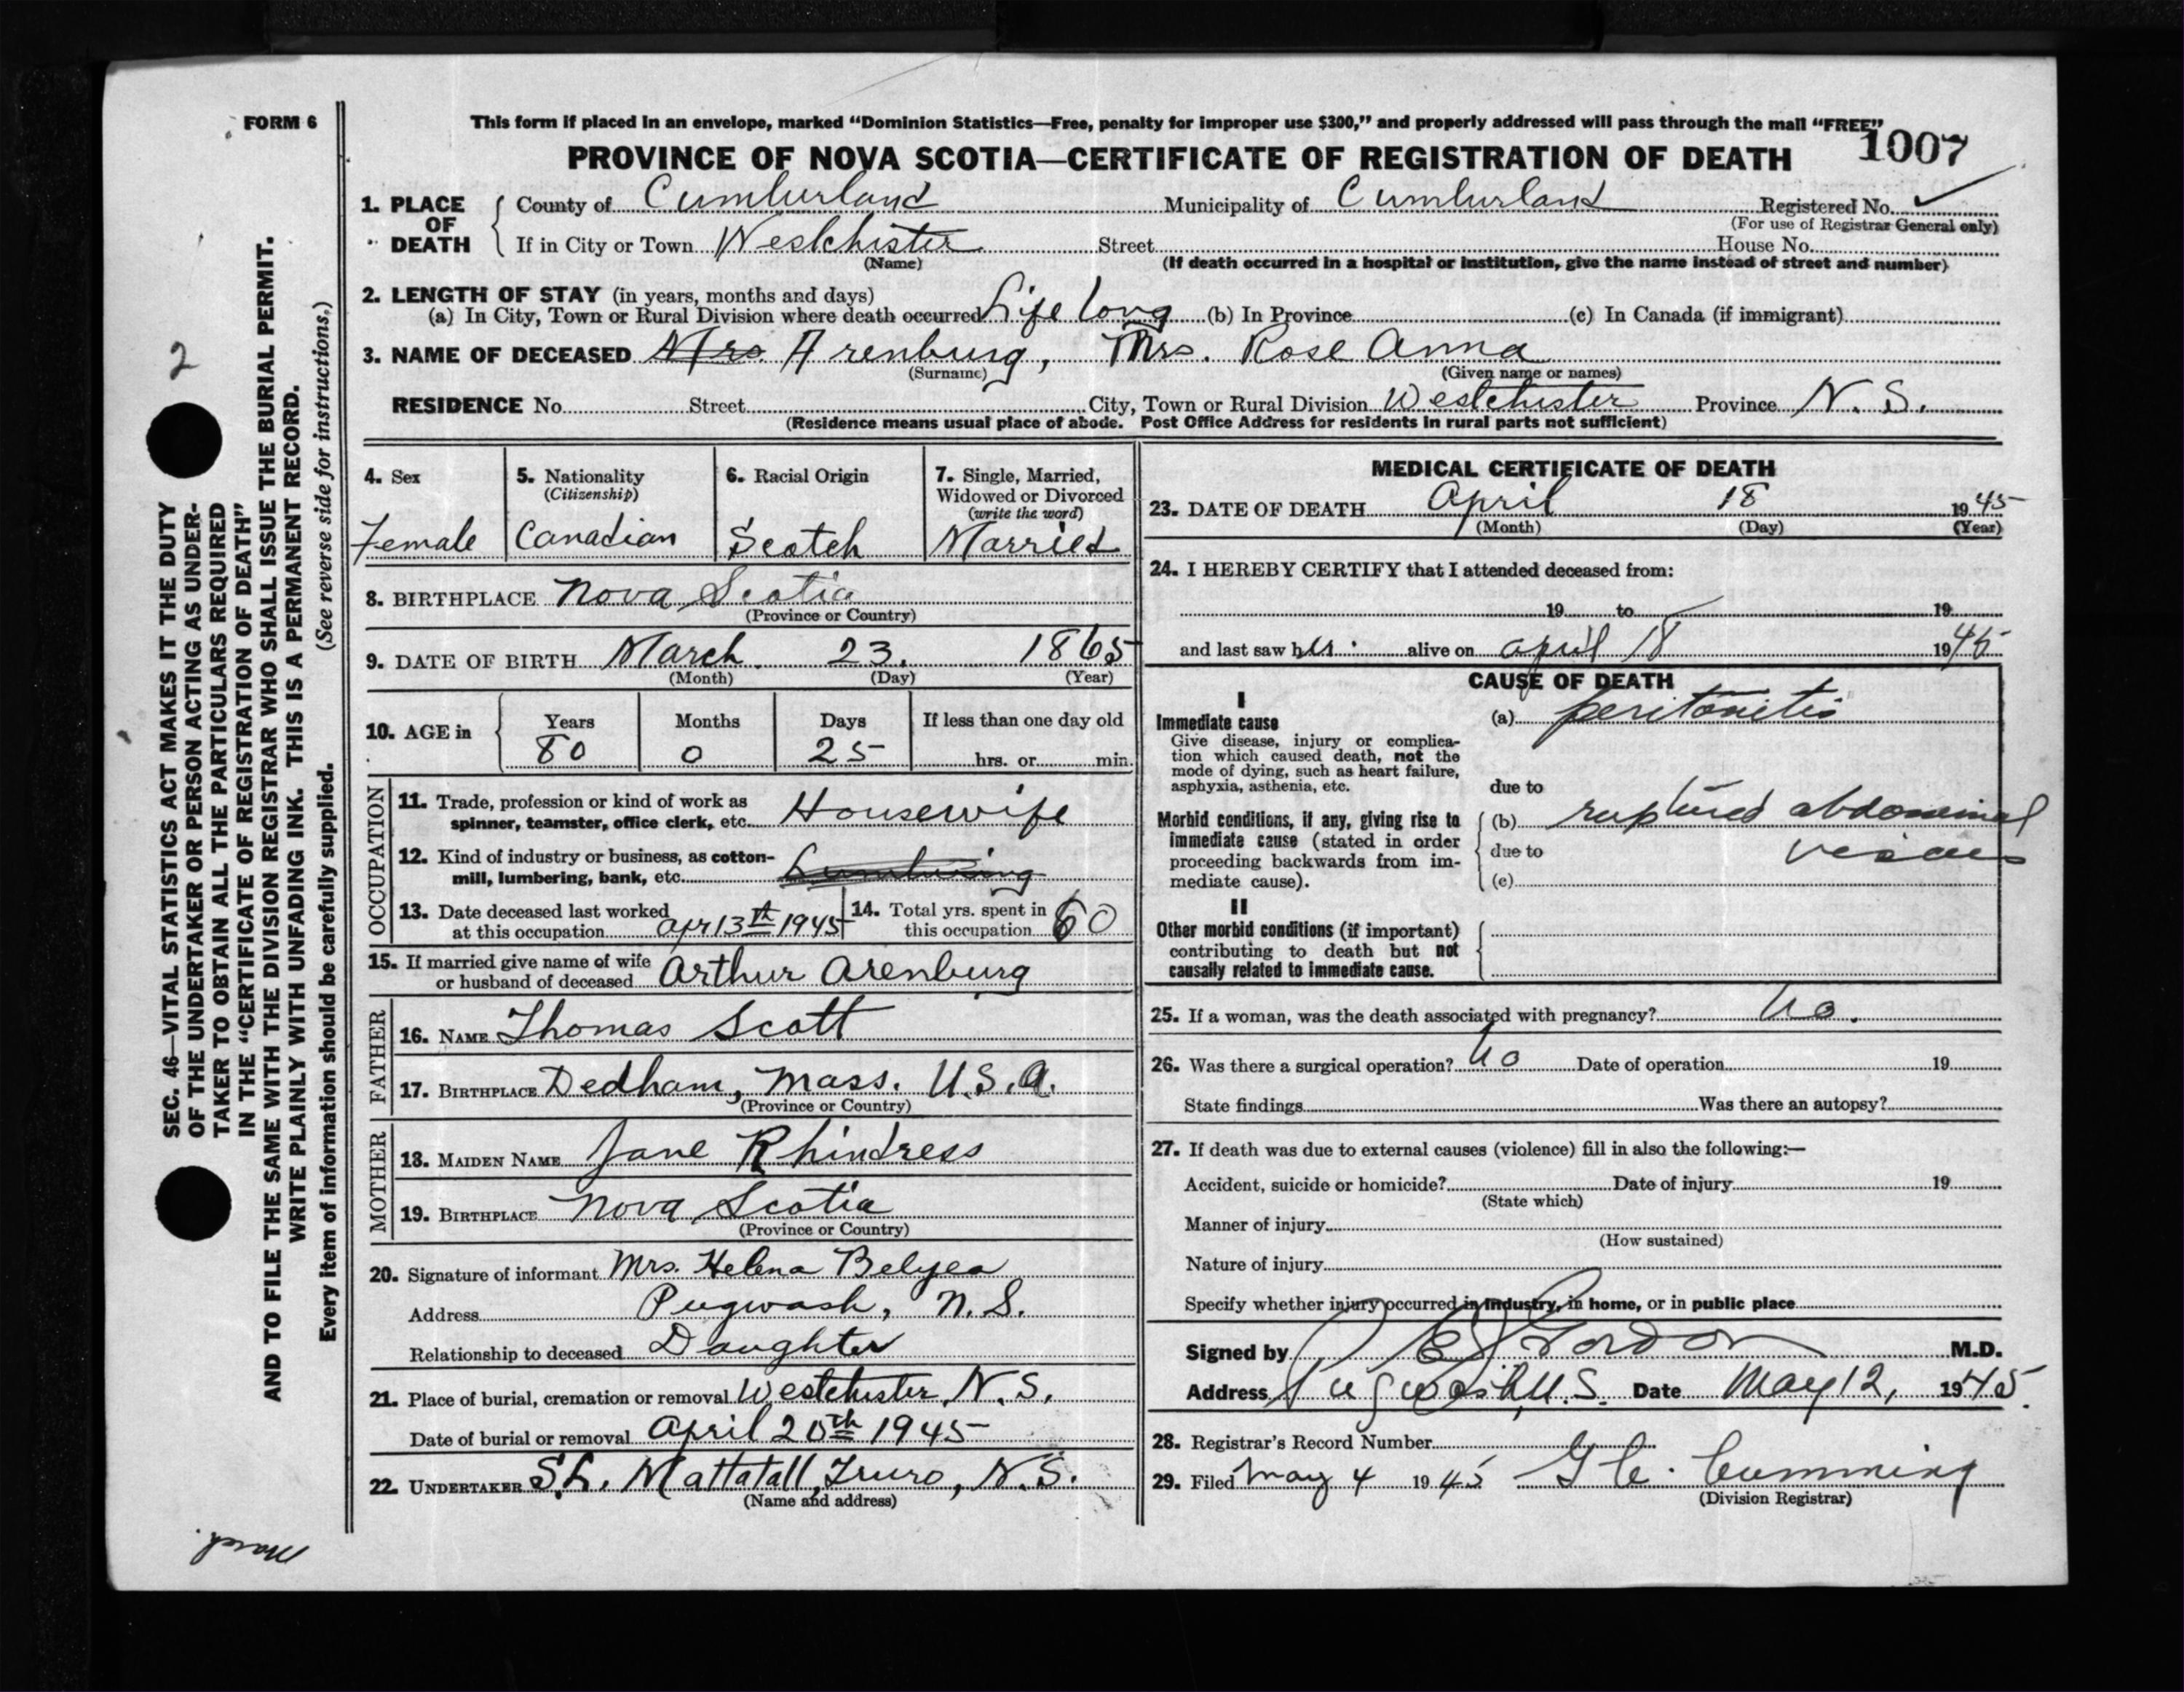 FORM 6
This form if placed in an envelope, marked "Dominion Statistics—Free, penalty for improper use $300," and properly addressed will pass through the mail "FREE"
PROVINCE OF NOVA SCOTIA—CERTIFICATE OF REGISTRATION OF DEATH 1007
1. PLACE OF DEATH County of Cumberland Municipality of Cumberland Registered No. ✓
(For use of Registrar General only)
If in City or Town Westchester Street House No.
(Name) (If death occurred in a hospital or institution, give the name instead of street and number)
2. LENGTH OF STAY (in years, months and days)
(a) In City, Town or Rural Division where death occurred Life long (b) In Province (c) In Canada (if immigrant)
3. NAME OF DECEASED Mrs Arenburg, Mrs. Rose Anna
(Surname) (Given name or names)
RESIDENCE No. Street City, Town or Rural Division Westchester Province N. S.
(Residence means usual place of abode. Post Office Address for residents in rural parts not sufficient)
4. Sex
Female
5. Nationality
(Citizenship)
Canadian
6. Racial Origin
Scotch
7. Single, Married,
Widowed or Divorced
(write the word)
Married
8. BIRTHPLACE Nova Scotia
(Province or Country)
9. DATE OF BIRTH March 23, 1865
(Month) (Day) (Year)
10. AGE in Years Months Days If less than one day old
80 0 25 hrs. or min.
OCCUPATION
11. Trade, profession or kind of work as
spinner, teamster, office clerk, etc. Housewife
12. Kind of industry or business, as cotton-
mill, lumbering, bank, etc.
13. Date deceased last worked
at this occupation Apr 13th 1945
14. Total yrs. spent in
this occupation 60
15. If married give name of wife
or husband of deceased Arthur Arenburg
FATHER
16. NAME Thomas Scott
17. BIRTHPLACE Dedham, Mass. U.S.A.
(Province or Country)
MOTHER
18. MAIDEN NAME Jane Rhindress
19. BIRTHPLACE Nova Scotia
(Province or Country)
20. Signature of informant Mrs. Helena Belyea
Address Pugwash, N.S.
Relationship to deceased Daughter
21. Place of burial, cremation or removal Westchester, N.S.
Date of burial or removal April 20th 1945
22. UNDERTAKER S.L. Mattatall, Truro, N.S.
(Name and address)
MEDICAL CERTIFICATE OF DEATH
23. DATE OF DEATH April 18 1945
(Month) (Day) (Year)
24. I HEREBY CERTIFY that I attended deceased from:
19 to 19
and last saw her alive on April 18 1945
CAUSE OF DEATH
I
Immediate cause
Give disease, injury or complica-
tion which caused death, not the
mode of dying, such as heart failure,
asphyxia, asthenia, etc.
(a) peritonitis
due to
Morbid conditions, if any, giving rise to
immediate cause (stated in order
proceeding backwards from im-
mediate cause).
(b) ruptured abdominal
due to
(c)
II
Other morbid conditions (if important)
contributing to death but not
causally related to immediate cause.
25. If a woman, was the death associated with pregnancy? No.
26. Was there a surgical operation? No Date of operation 19
State findings Was there an autopsy?
27. If death was due to external causes (violence) fill in also the following:—
Accident, suicide or homicide? Date of injury 19
(State which)
Manner of injury
(How sustained)
Nature of injury
Specify whether injury occurred in industry, in home, or in public place
Signed by Gordon M.D.
Address Pugwash, N.S. Date May 12, 1945
28. Registrar's Record Number
29. Filed May 4 1945 G C. Cumming
(Division Registrar)
2
SEC. 46—VITAL STATISTICS ACT MAKES IT THE DUTY
OF THE UNDERTAKER OR PERSON ACTING AS UNDER-
TAKER TO OBTAIN ALL THE PARTICULARS REQUIRED
IN THE "CERTIFICATE OF REGISTRATION OF DEATH"
AND TO FILE THE SAME WITH THE DIVISION REGISTRAR WHO SHALL ISSUE THE BURIAL PERMIT.
WRITE PLAINLY WITH UNFADING INK. THIS IS A PERMANENT RECORD.
Every item of information should be carefully supplied. (See reverse side for instructions.)